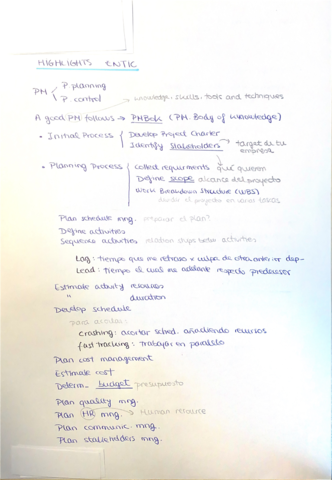 HIGHLIGHTS CNTIC
PM { P planning
P control
knowledge, skills, tools and techniques
A good PM follows → PMBok (PM. Body of Knowledge)
• Initial Process { Develop Project Charter
Identify Stakeholders → target de tu empresa
• Planning Process { collect requirments que quieren
Define scope alcance del proyecto
Work Breakdown Structure (WBS)
dividir el proyecto en varias
Plan schedule mng. el plan?
Define activities
Sequence activities relation ships betw activities
Lag: tiempo que me retraso x culpa de otra anterior dep-
Lead: tiempo el cual me adelanto respecto predecesor
Estimate activity resources
" duration
Develop schedule
para acortar:
crashing: acortar sched. añadiendo recursos
fast tracking: trabajar en paralelo
Plan cost management
Estimate cost
Determ. budget presupuesto
Plan quality mng.
Plan HR mng. → Human resource
Plan communic. mng.
Plan stakeholders mng.